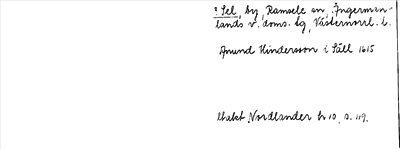 ? Sel, by, Ramsele sn, Ångerman-
lands v. doms. sg, Västernorrl. l.
Amund Hindersson i Säll 1615
Utdekt Nordlander h 10, s. 119.